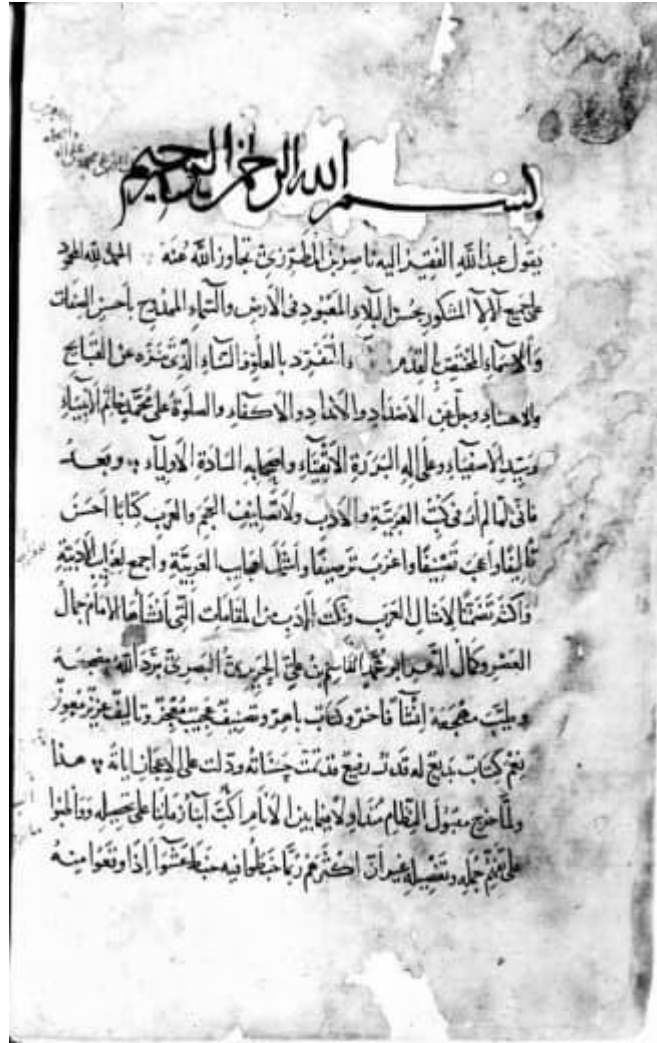 بسم الله الرحمن الرحيم
يقول عبد الله الفقير اليه ناصر بن المطرزي تجاوز الله عنه الحمد لله المحمود
على جميع الآلاء المشكور بحسن البلاء المعبود في الارض والسماء الممدوح باحسن الصفات
والاسماء المختص بالقدم والتفرد بالعلاء والسناء الذي تنزه عن القبايح
وجل عن الاضداد والانداد والاكفاء والصلوة على محمد خاتم الانبياء
وسيد الاصفياء وعلى اله البررة الاتقياء واصحابه السادة الاولياء وبعد
فاني لما لم ار في كتب العربية والادب ولا تصانيف العجم والعرب كتابا احسن
تاليفا واعجب تصنيفا واغرب ترصيفا واشمل لعجايب العربية واجمع لغرايب الادبية
واكثر تضمنا لامثال العرب ونكت الادب من المقامات التي انشاها الامام جمال
العصر وكمال الدهر ابو محمد القاسم بن علي الحريري البصري برد الله مضجعه
وطيب مهجعه انشا فاخر وكتاب باهر وتصنيف عجيب معجز وتاليف عزيز معوز
نعم كتاب بديع له قدر رفيع قد تمت حسناته ودلت على الاعجاز اياته هذا
ولما خرج مقبول النظام متداولا فيما بين الانام اكب ابنا زماننا على تحصيله وواظبوا
على جمله وتفصيله غير ان اكثرهم ربما خبطوا فيه خبط عشوا اذا وقعوا منه